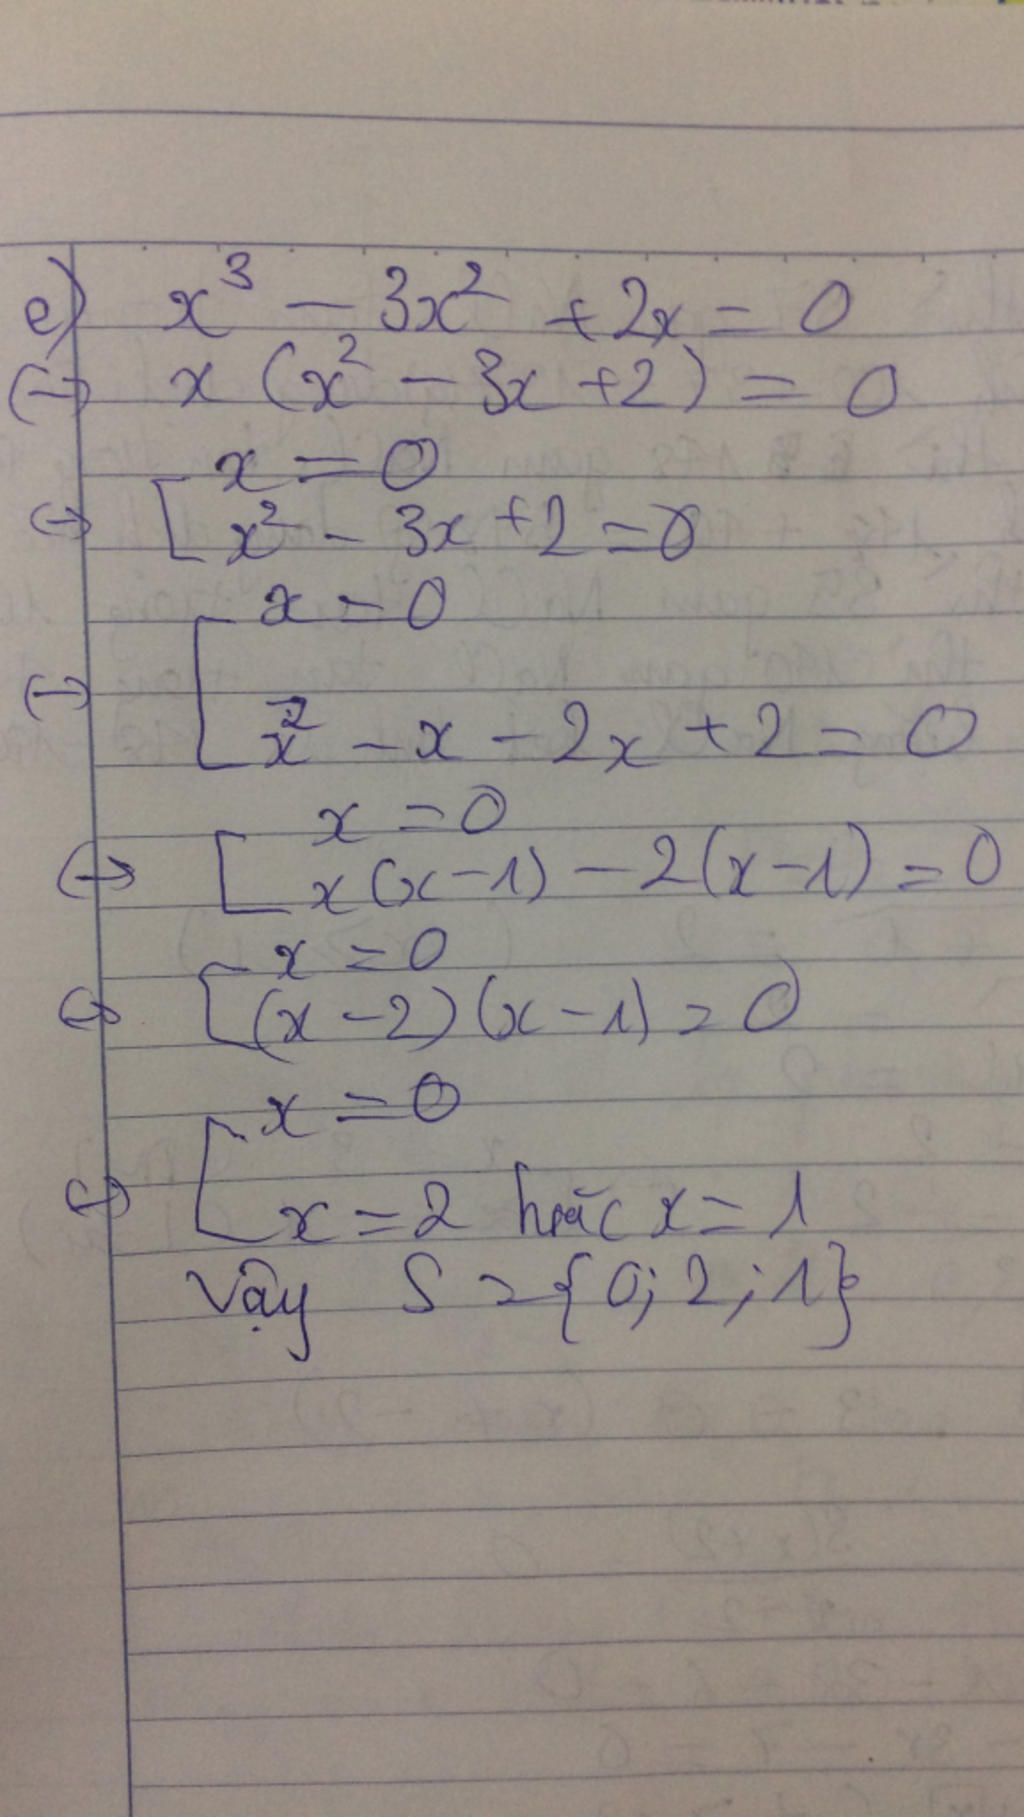 e) x³ - 3x² + 2x = 0
(→) x (x² - 3x + 2) = 0
x = 0
(→) [ x² - 3x + 2 = 0
x = 0
(→) [
x² - x - 2x + 2 = 0
x = 0
(→) [ x(x-1) - 2(x-1) = 0
x = 0
(→) [ (x-2)(x-1) = 0
x = 0
(→) [ x = 2 hoặc x = 1
Vậy S = {0; 2; 1}